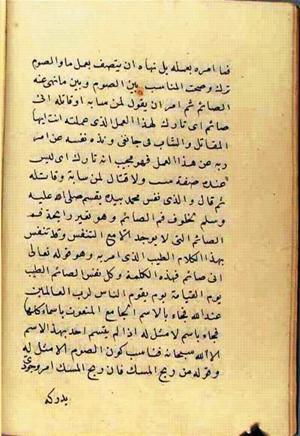 فما امره بعمله بل نهاه ان يتصف بعمل ما والصوم
ترك وصحت المناسبة بين الصوم وبين ما نهى عنه
الصائم ثم امر ان يقول لمن سابه او قاتله انى
صائم اى تارك لهذا العمل الذى عملته انت ايها
المقاتل والشاب فى جانبى ونزه نفسه عن امر
ربه عن هذا العمل فهو مخبر انه تارك اى ليس
عنده صفة سب ولا قتال لمن سابه وقاتله
ثم قال والذى نفس محمد بيده يقسم صلى الله عليه
وسلم لخلوف فم الصائم وهو تغير رايحة فم
الصائم التى لا يوجد الا مع التنفس وقد تنفس
بهذا الكلام الطيب الذى امر به وهو قوله تعالى
انى صائم فهذه الكلمة وكل نفس لصائم اطيب
يوم القيامة يوم يقوم الناس لرب العالمين
عند الله فجاء بالاسم الجامع المنعوت بالاسماء كلها
فجاء باسم لا مثل له اذ لم يتسم احد بهذا الاسم
الا الله سبحانه فناسب كون الصوم لا مثل له
وقوله من ريح المسك فان ريح المسك امر وجودى
يدركه